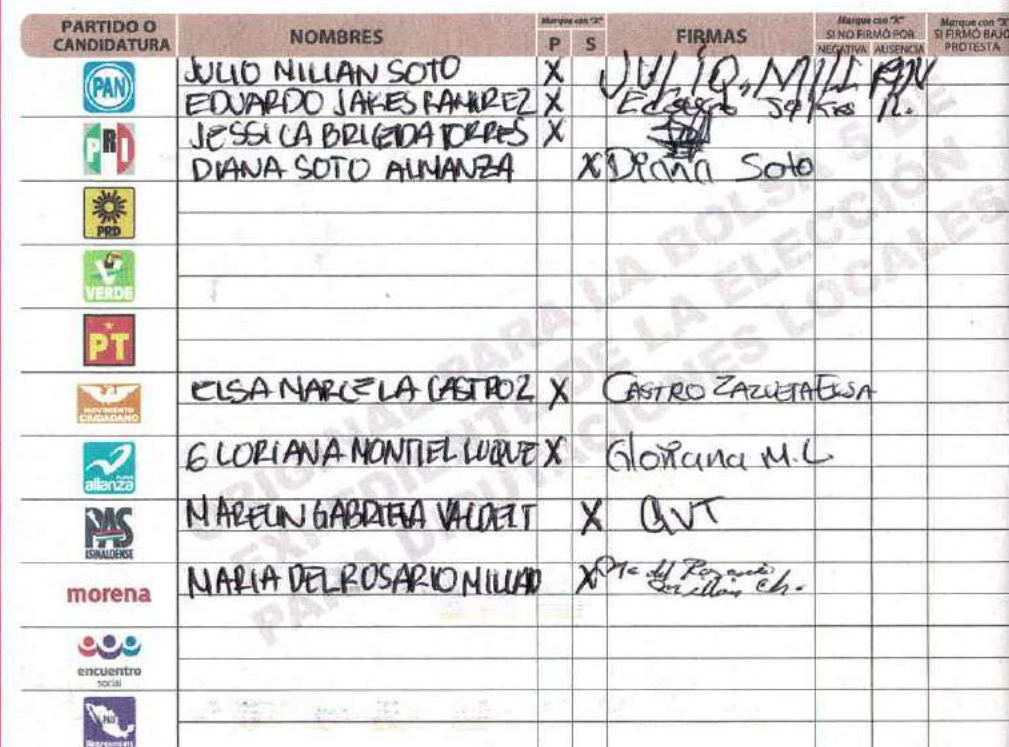 PARTIDO O CANDIDATURA
NOMBRES
Marque con "X"
P S
FIRMAS
Marque con "X"
SI NO FIRMÓ POR
NEGATIVA AUSENCIA
Marque con "X"
SI FIRMÓ BAJO PROTESTA
PAN
JULIO MILLAN SOTO X JULIO, MILLAN
EDUARDO JAKES RAMIREZ X
PRI
JESSICA BRIGEDA TORRES X
DIANA SOTO ALMANZA X Diana Soto
PRD
VERDE
PT
MOVIMIENTO CIUDADANO
ELSA MARCELA CASTRO Z X CASTRO ZAZUETA ELSA
alianza
GLORIANA MONTIEL LUQUE X Gloriana M.L
PAS
SINALOENSE
MARELIN GABRIELA X GVT
morena
MARIA DEL ROSARIO MILLAN X Ma del Rosario Millán Ch.
encuentro social
PAIS
ORIGINAL PARA LA BOLSA 5 DE
EXPEDIENTE DE LA ELECCIÓN
PARA DIPUTACIONES LOCALES